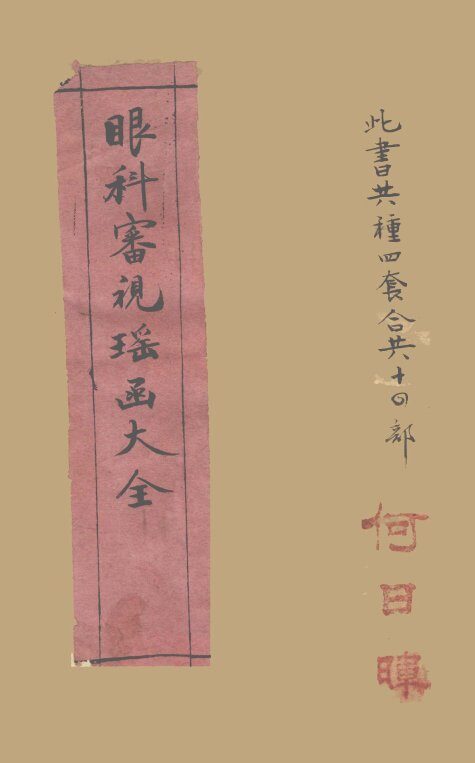 此書共種四套合共十四部
何日暉
眼科審視瑶函大全